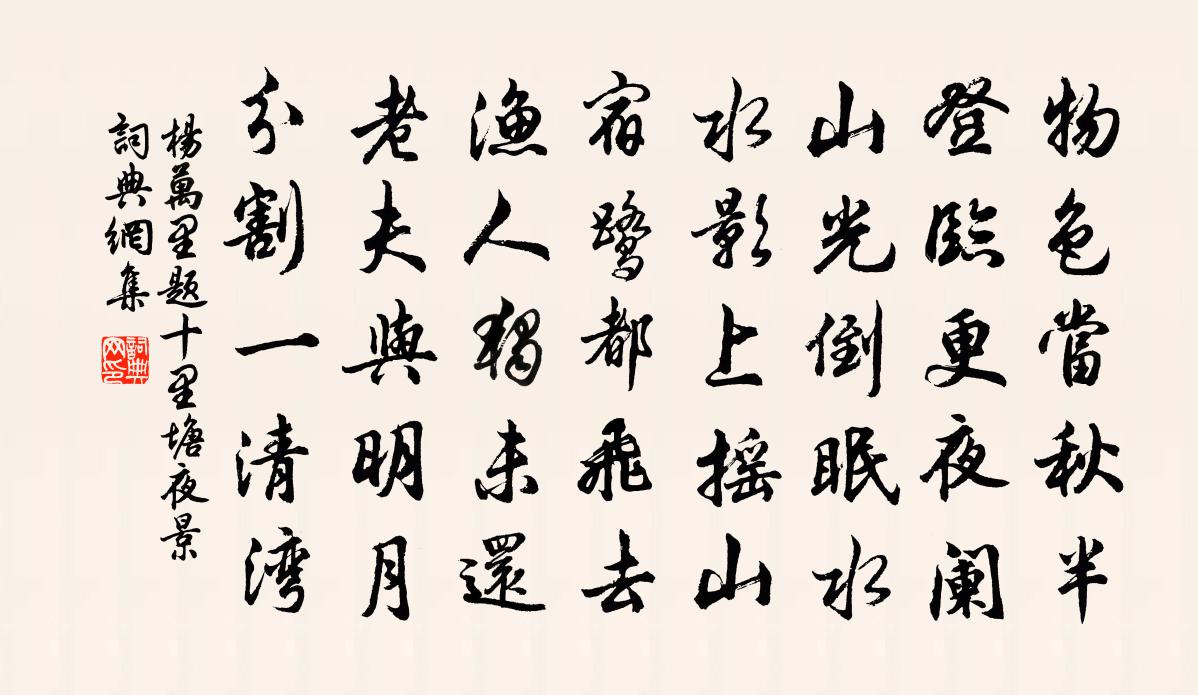 物色當秋半
登臨更夜阑
山光倒眠水
水影上摇山
宿鹭都飛去
漁人獨未還
老夫與明月
分割一清湾
楊萬里題十里塘夜景
詞典網集
詞典网印